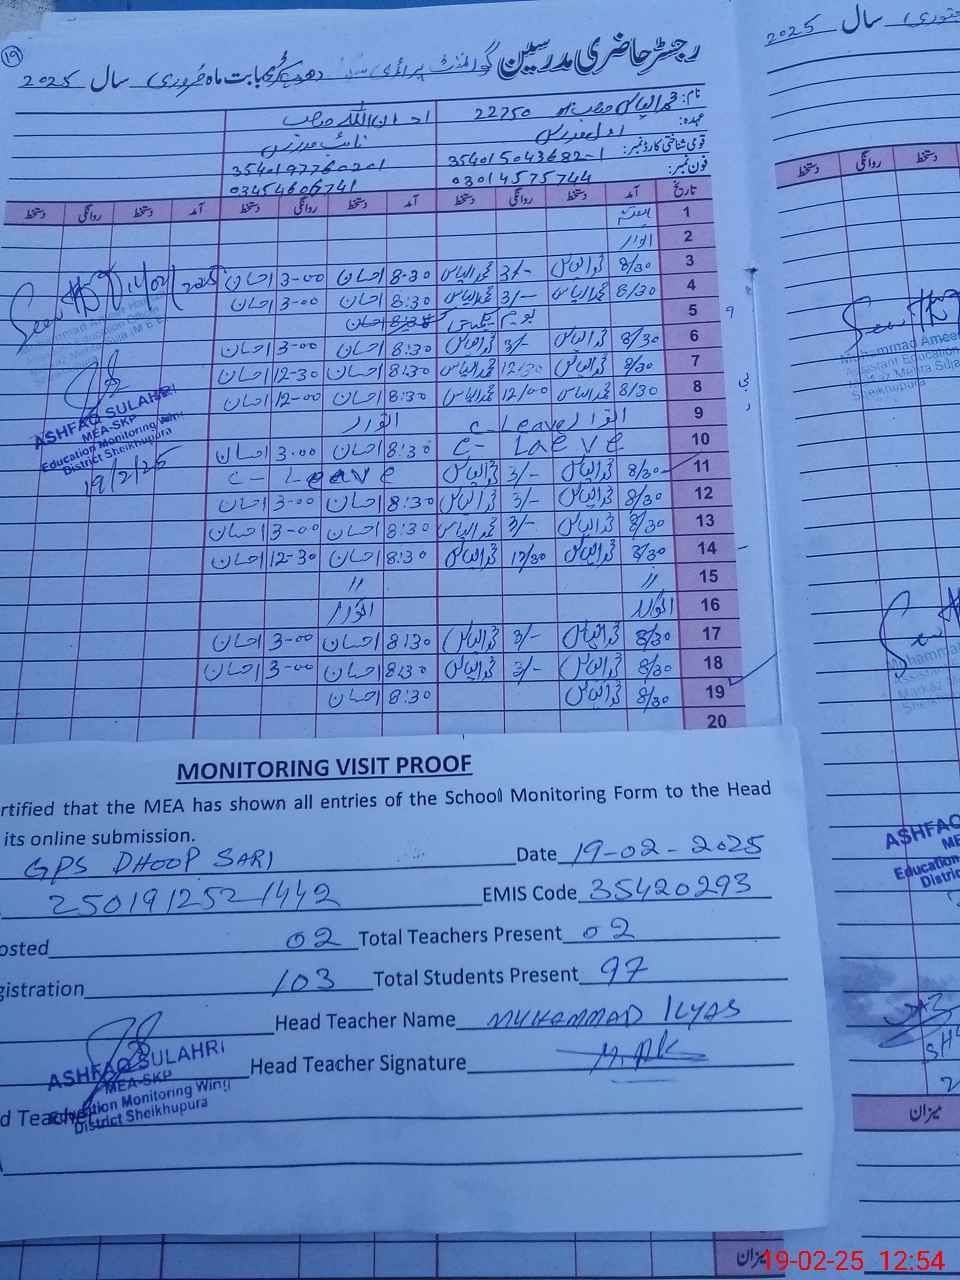 ۱۹
رجسٹر حاضری مدرسین گورنمنٹ پرائمری سکول دھوپ سڑی بابت ماہ فروری سال 2025
نام: محمد الیاس صاحب 22750 احسان اللہ صاحب
عہدہ: اول مدرس نائب مدرس
قومی شناختی کارڈ نمبر: 35401-5043682-1 3540197760201
فون نمبر: 03014575744 03454606741
تاریخ آمد دستخط روانگی دستخط آمد دستخط روانگی دستخط آمد دستخط روانگی دستخط
1
2 اتوار
3 8/30 محمد الیاس 3/- محمد الیاس 8-30 احسان 3-00 احسان
4 8/30 محمد الیاس 3/- محمد الیاس 8:30 احسان 3-00 احسان
5 یوم یکجہتی
6 8/30 محمد الیاس 3/- محمد الیاس 8:30 احسان 3-00 احسان
7 8/30 محمد الیاس 12/30 محمد الیاس 8:30 احسان 12-30 احسان
8 8/30 محمد الیاس 12/00 محمد الیاس 8:30 احسان 12-00 احسان
9 اتوار C-Leave اتوار
10 C-Laeve 8:30 احسان 3.00 احسان
11 8/30 محمد الیاس 3/- محمد الیاس C-Leave
12 8/30 محمد الیاس 3/- محمد الیاس 8:30 احسان 3-00 احسان
13 8/30 محمد الیاس 3/- محمد الیاس 8:30 احسان 3-00 احسان
14 8/30 محمد الیاس 12/30 محمد الیاس 8:30 احسان 12-30 احسان
15 // //
16 اتوار اتوار
17 8/30 محمد الیاس 3/- محمد الیاس 8:30 احسان 3-00 احسان
18 8/30 محمد الیاس 3/- محمد الیاس 8:30 احسان 3-00 احسان
19 8/30 محمد الیاس 8:30 احسان
20
Seen
11/02/2025
ASHFAQ SULAHRI
MEA-SKP
Education Monitoring Wing
District Sheikhupura
19/2/25
MONITORING VISIT PROOF
rtified that the MEA has shown all entries of the School Monitoring Form to the Head
its online submission.
GPS DHOOP SARI Date 19-02-2025
2501912521442 EMIS Code 35420293
osted 02 Total Teachers Present 02
gistration 103 Total Students Present 97
Head Teacher Name MUHAMMAD ILYAS
Head Teacher Signature
ASHFAQ SULAHRI
MEA-SKP
Education Monitoring Wing
District Sheikhupura
d Teacher
سال 2025
دستخط روانگی دستخط
Seen
Muhammad Ameer
Assistant Education
Sheikhupura
Seen
Muhammad
ASHFAQ
ME
Education
Distric
میزان
میزان
19-02-25 12:54